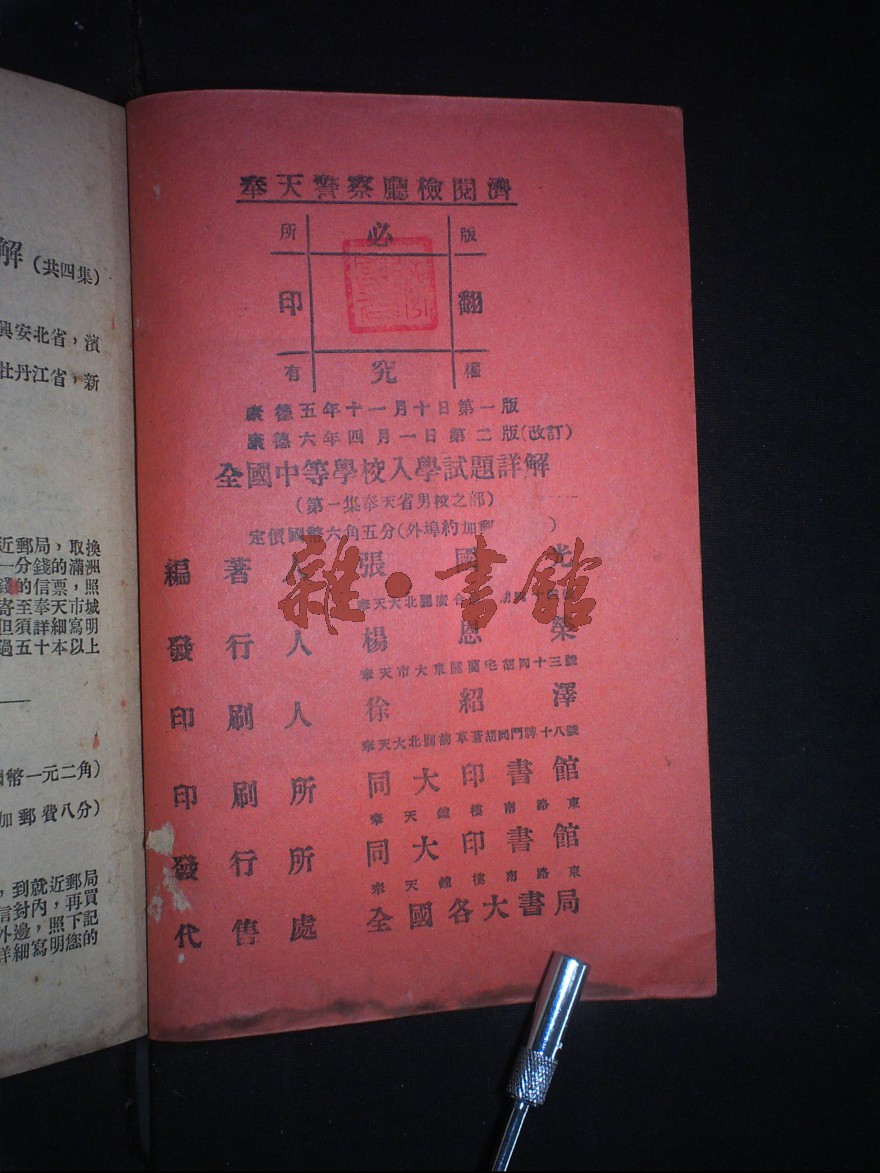 奉天警察廳檢閱濟
所 必 版
印 翻
有 究 權
康德五年十一月十日第一版
康德六年四月一日第二版(改訂)
全國中等學校入學試題詳解
(第一集奉天省男校之部)
定價國幣六角五分(外埠約加郵
編著人 張國光
奉天大北關
發行人 楊恩榮
奉天市大東關蘭宅胡同十三號
印刷人 徐紹澤
奉天大北關 胡同門牌十八號
印刷所 同大印書館
奉天鐘樓南路東
發行所 同大印書館
奉天鐘樓南路東
代售處 全國各大書局
雜·書館
解(共四集)
興安北省,濱
牡丹江省,新
近郵局,取換
一分錢的滿洲
錢的信票,照
寄至奉天市城
但須詳細寫明
過五十本以上
國幣一元二角)
加郵費八分)
,到就近郵局
信封內,再買
外邊,照下記
詳細寫明您的